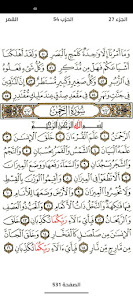 الجزء 27 الحزب 54 القمر
وَمَا أَمْرُنَا إِلَّا وَاحِدَةٌ كَلَمْحٍ بِالْبَصَرِ ٥٠ وَلَقَدْ أَهْلَكْنَا
أَشْيَاعَكُمْ فَهَلْ مِن مُّدَّكِرٍ ٥١ وَكُلُّ شَيْءٍ فَعَلُوهُ فِي الزُّبُرِ
٥٢ وَكُلُّ صَغِيرٍ وَكَبِيرٍ مُّسْتَطَرٌ ٥٣ إِنَّ الْمُتَّقِينَ فِي جَنَّاتٍ
وَنَهَرٍ ٥٤ فِي مَقْعَدِ صِدْقٍ عِندَ مَلِيكٍ مُّقْتَدِرٍ ٥٥
سُورَةُ الرَّحْمَٰن
بِسْمِ اللَّهِ الرَّحْمَٰنِ الرَّحِيمِ
الرَّحْمَٰنُ ١ عَلَّمَ الْقُرْآنَ ٢ خَلَقَ الْإِنسَانَ ٣ عَلَّمَهُ الْبَيَانَ
٤ الشَّمْسُ وَالْقَمَرُ بِحُسْبَانٍ ٥ وَالنَّجْمُ وَالشَّجَرُ يَسْجُدَانِ
٦ وَالسَّمَاءَ رَفَعَهَا وَوَضَعَ الْمِيزَانَ ٧ أَلَّا تَطْغَوْا فِي الْمِيزَانِ
٨ وَأَقِيمُوا الْوَزْنَ بِالْقِسْطِ وَلَا تُخْسِرُوا الْمِيزَانَ ٩
وَالْأَرْضَ وَضَعَهَا لِلْأَنَامِ ١٠ فِيهَا فَاكِهَةٌ وَالنَّخْلُ ذَاتُ الْأَكْمَامِ
١١ وَالْحَبُّ ذُو الْعَصْفِ وَالرَّيْحَانُ ١٢ فَبِأَيِّ آلَاءِ رَبِّكُمَا
تُكَذِّبَانِ ١٣ خَلَقَ الْإِنسَانَ مِن صَلْصَالٍ كَالْفَخَّارِ ١٤ وَخَلَقَ الْجَانَّ
مِن مَّارِجٍ مِّن نَّارٍ ١٥ فَبِأَيِّ آلَاءِ رَبِّكُمَا تُكَذِّبَانِ ١٦
الصفحة 531